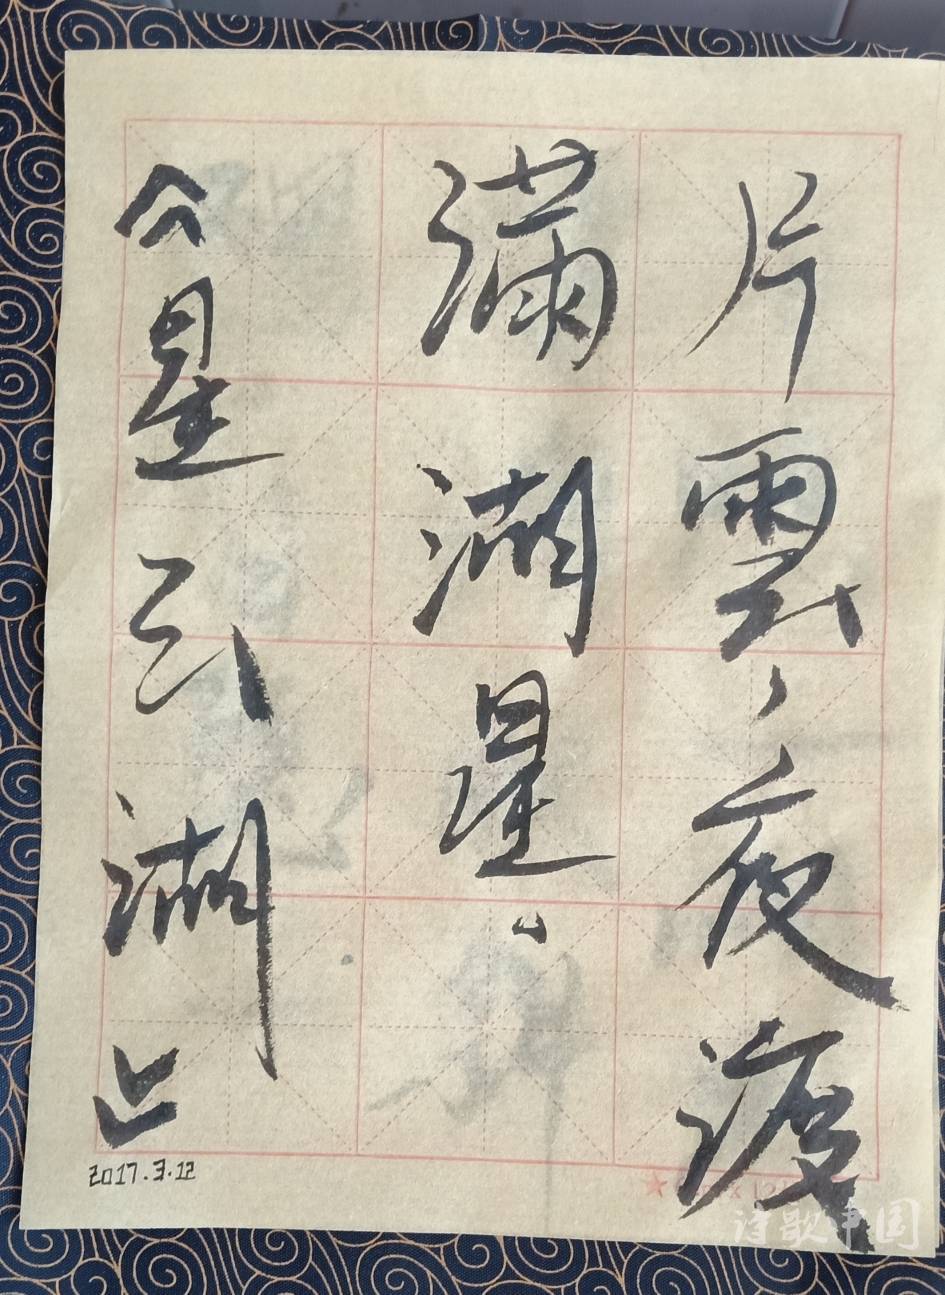 片雲、夜渡
滿湖星。
《星云湖》
2017.3.12
诗歌中国